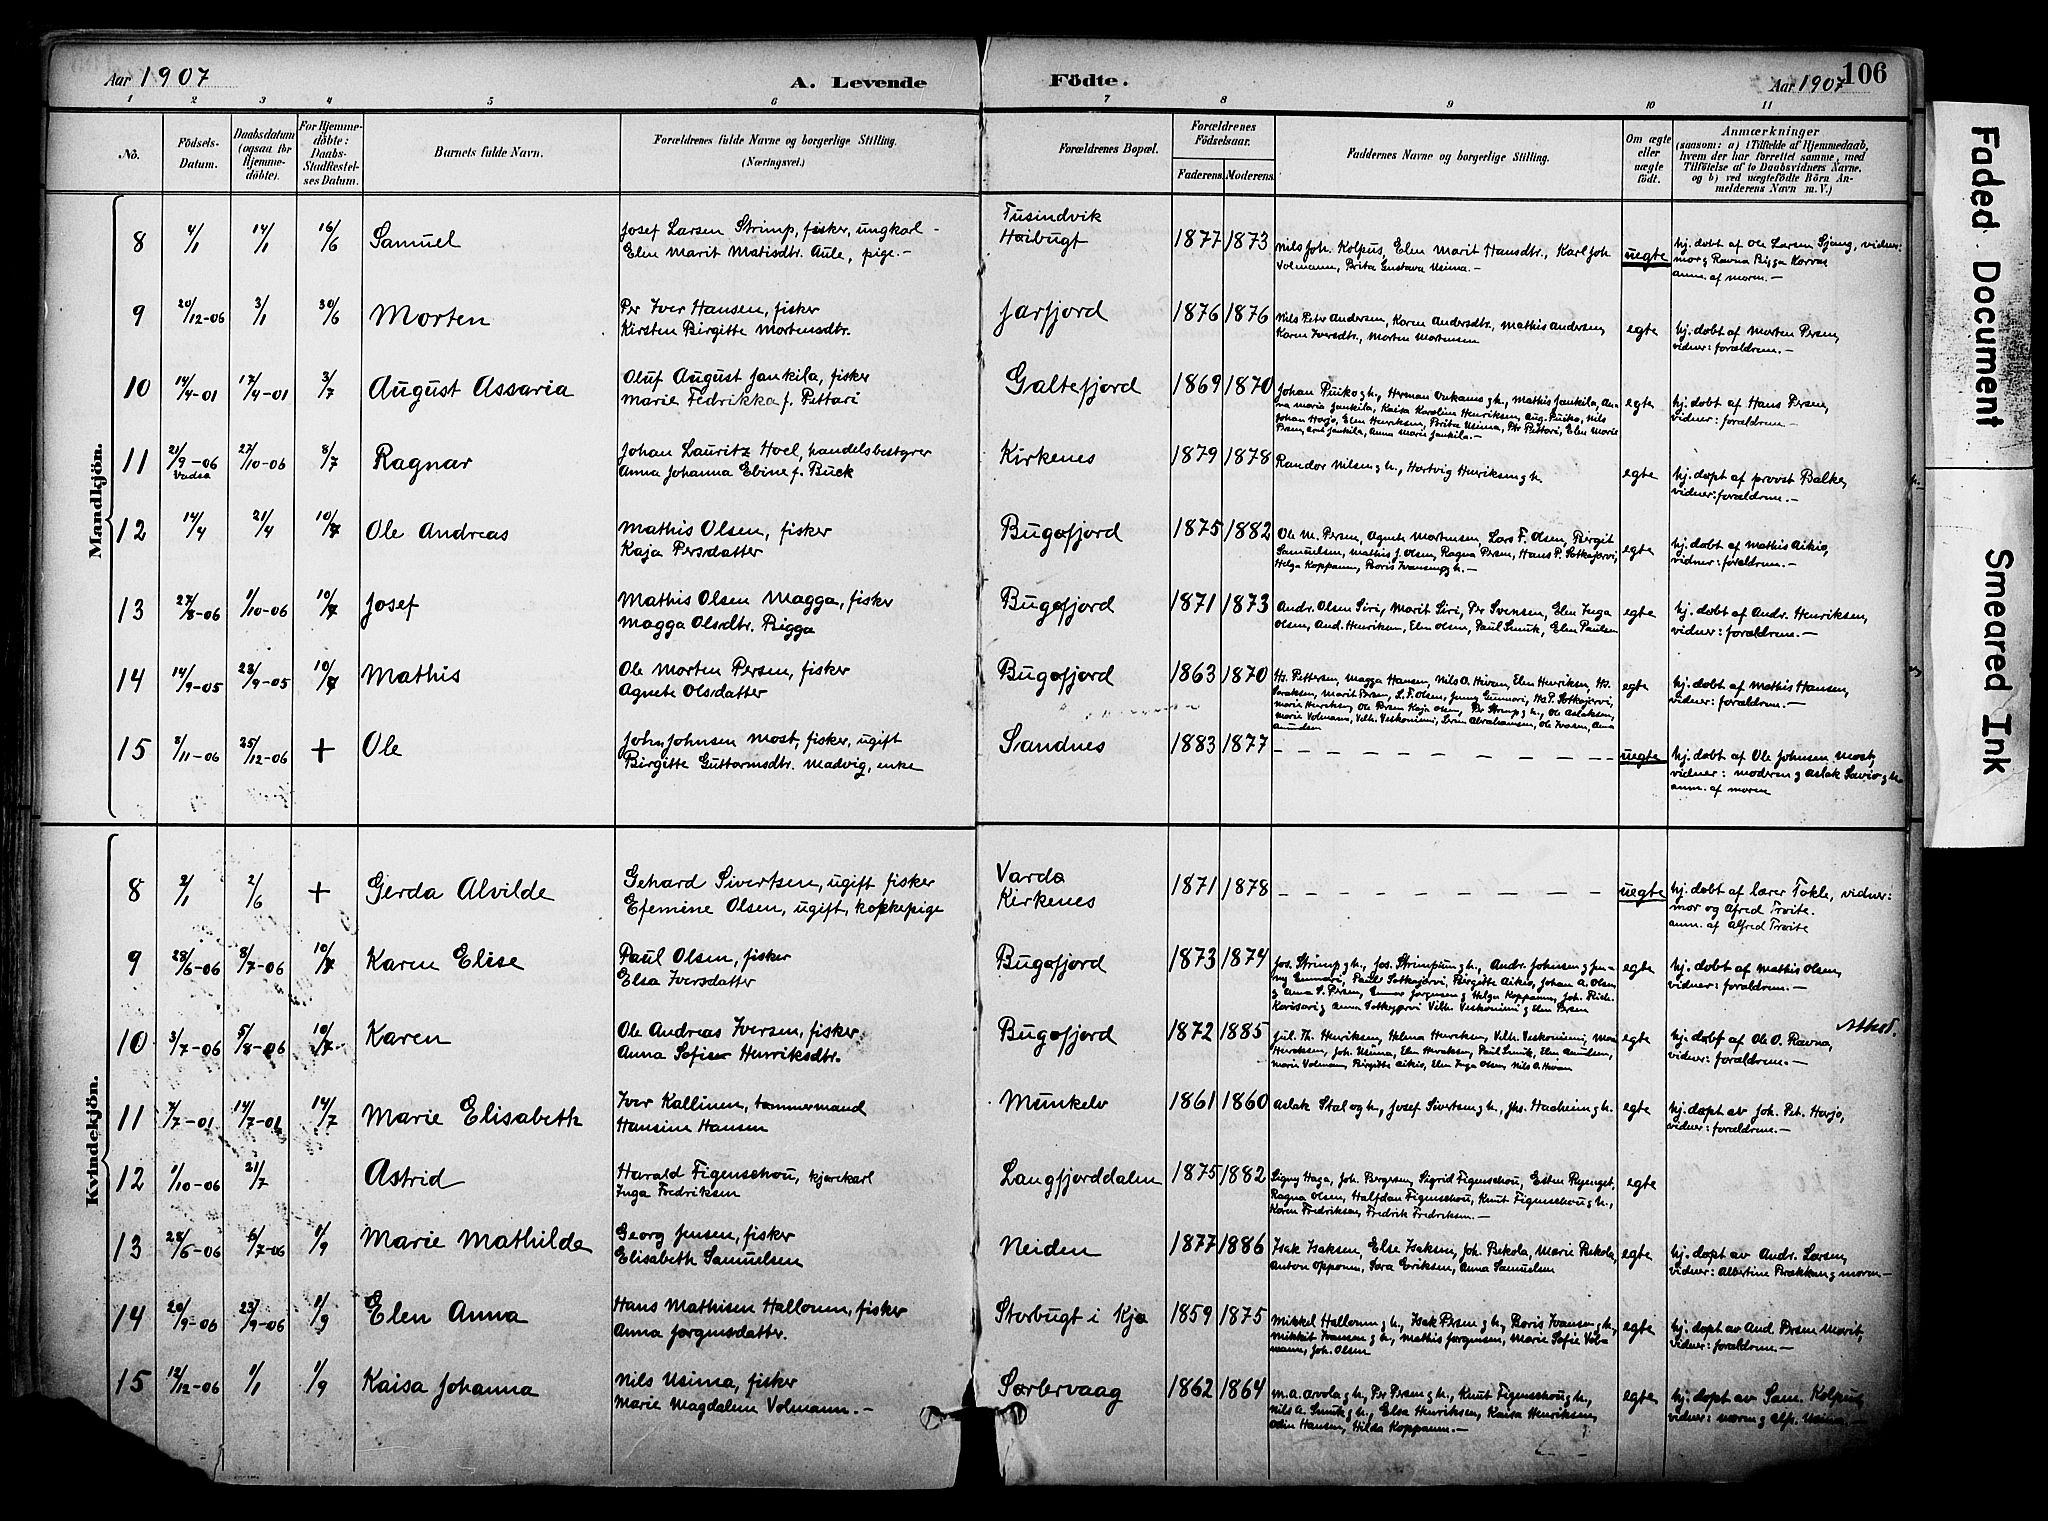 Aar 1907 A. Levende Födte. Aar 1907 106
1 2 3 4 5 6 7 8 9 10 11
No. Födsels-Datum. Daabsdatum (ogsaa for Hjemmedöbte). For Hjemmedöbte: Daabs-Stadfæstelses Datum. Barnets fulde Navn. Forældrenes fulde Navne og borgerlige Stilling. (Næringsvei.) Forældrenes Bopæl. Forældrenes Födselsaar. Faderens. Moderens. Faddernes Navne og borgerlige Stilling. Om ægte eller uægte födt. Anmærkninger (saasom: a) i Tilfælde af Hjemmedaab, hvem der har forrettet samme, med Tilföielse af to Daabsvidners Navne. og b) ved uægtefödte Börn Anmelderens Navn m. V.)
Mandkjön.
8 4/1 14/1 16/6 Samuel Josef Larsen Strimp, fisker, ungkarl - Tusindvik 1877 1873 Nils Joh. Kolpus, Elen Marit Hansdtr., Karl Joh. uegte hj. døbt af Ole Larsen Sjang, vidner:
Elen Marit Matisdtr. Aule, pige.- Høibugt Volmann, Brita Gustava Usima.- mor og Ravna Bigga Korvas
anm. af moren.-
9 20/12-06 3/1 30/6 Morten Per Iver Hansen, fisker Jarfjord 1876 1876 Nils Peter Andersen, Karen Andersdtr., Mathis Andersen, egte hj. døbt af Morten Persen,
Kirsten Birgitte Mortensdtr. Karen Iversdtr., Morten Mortensen vidner: forældrene.-
10 14/4-01 17/4-01 3/7 August Assaria Oluf August Jankila, fisker Galtefjord 1869 1870 Johan Puiko g h., Herman Onkamo g h., Mathis Jankila, An- egte hj. døbt af Hans Persen,
Marie Fedrikka f. Pettari na Maria Jankila, Kaisa Karolina Henriksen, Aug. Puiko, Nils vidner: forældrene.-
Johan Harjo, Elen Henriksen, Brita Usima, Per Pettari, Elen Marie
Persen, Jankila, Anna Marie Jankila.-
11 21/9-06 Vadsø 27/10-06 8/7 Ragnar Johan Lauritz Hoel, handelsbestyrer Kirkenes 1879 1878 Randor Nilsen g h., Hartvig Henriksen g h. egte hj. døpt af provst Balke,
Anna Johanna Ebine f. Buck vidner: forældrene.-
12 14/4 21/4 10/7 Ole Andreas Mathis Olsen, fisker Bugøfjord 1875 1882 Ole M. Persen, Agnete Mortensen, Lars F. Olsen, Birgit egte hj. døbt af Mathis Aikio,
Kaja Persdatter Samuelsen, Mathis J. Olsen, Ragna Persen, Hans P. Sotkajervi, vidner: forældrene.-
Helga Koppanen, Boris Ivansen g h.-
13 27/8-06 1/10-06 10/7 Josef Mathis Olsen Magga, fisker Bugøfjord 1871 1873 Andr. Olsen Siri, Marit Siri, Per Svensen, Elen Inga egte hj. døbt af Andr. Henriksen,
Magga Olsdtr. Bigga Olsen, And. Henriksen, Elen Olsen, Paul Smuk, Elen Paulsen vidner: forældrene.-
14 14/9-05 23/9-05 10/7 Mathis Ole Morten Persen, fisker Bugøfjord 1863 1870 Hs. Pettersen, Magga Hansen, Nils O. Hivan, Elen Henriksen, Hs. egte hj. døbt af Mathis Hansen,
Agnete Olsdatter Isaksen, Marit Persen, L. F. Olsen, Jenny Gunnari, Hs P. Sotkajervi, vidner: forældrene.-
Marie Henriksen, Ole Persen, Kaja Olsen, Per Strimp g h., Ole Aslaksen,
Marie Volmann, Vilh. Veskoniemi, Soren Abrahamsen, Ole Ivarsen, Anna
Amundsen
15 8/11-06 25/12-06 + Ole John Johnsen Most, fisker, ugift Sandnes 1883 1877 - - - - - - - uegte hj. døbt af Ole Johnsen Most,
Birgitte Guttormsdtr. Madvig, enke vidner: moderen g Aslak Savio g h.
anm. af moren
Kvindekjön.
8 2/1 2/6 + Gerda Alvilde Gehard Sivertsen, ugift fisker Vardø 1871 1878 - - - - - - - uegte hj. døbt af lærer Tokle, vidner:
Efemine Olsen, ugift, kokkepige Kirkenes mor og Alfred Trøite.
anm. af Alfred Trøite
9 28/6-06 8/7-06 10/7 Karen Elise Paul Olsen, fisker Bugøfjord 1873 1874 Jos. Strimp g h., Jos. Strimpum g h., Andr. Johnsen g Jen- egte hj. døbt af Mathis Olsen,
Elsa Iversdatter ny Gunnari, Paul Sotkajervi, Birgitte Aikio, Johan A. Olsen vidner: forældrene.-
g Anna S. Persen, Einar Jørgensen g Helga Koppanen, Joh. Rid.
Karisari g Anna Sotkajervi, Vilh. Veskoniemi g Elen Persen
10 3/7-06 5/8-06 10/7 Karen Ole Andreas Iversen, fisker Bugøfjord 1872 1885 Jul. Th. Henriksen, Helena Henriksen, Vilh. Veskoniemi, Mar. egte hj. døbt af Ole O. Ravna,
Anna Sofie Henriksdtr. Henriksen, Joh. Usima, Elen Henriksen, Paul Smuk, Elen Amundsen, vidner: forældrene.-
Marie Volmann, Birgitte Aikio, Elen Inga Olsen, Nils O. Hivan
11 7/7-01 14/7-01 14/7 Marie Elisabeth Iver Kallinen, tømmermand Munkelv 1861 1860 Aslak Stal og h., Josef Sivertsen g h., Jhs. Hacheim g h. egte hj. døpt av Joh. Pet. Harjo,
Hansine Hansen vidner: forældrene.-
12 1/10-06 21/7 Astrid Harald Figenschou, kjørekarl Langfjorddalen 1875 1882 Signy Haga, Joh. Bergersen, Sigrid Figenschou, Ester egte
Inga Fredriksen Ragna Olsen, Halfdan Figenschou, Knut Figenschou g h.,
Karen Fredriksen, Fredrik Fredriksen.-
13 28/6-06 6/7-06 1/9 Marie Mathilde Georg Jensen, fisker Neiden 1877 1886 Isak Isaksen, Else Isaksen, Joh. Bekola, Marie Bekola, egte hj. døpt av Andr. Larsen,
Elisabeth Samuelsen Anton Opponen, Sara Eriksen, Anna Samuelsen vidner: Albertine Brækkan g moren-
14 20/9-06 23/9-06 1/9 Elen Anna Hans Mathisen Hallonen, fisker Storbugt i Kjø 1859 1875 Mikkel Hallonen g h., Isak Persen g h., Boris Ivansen g h., egte hj. døpt av And. Persen Marit,
Anna Jørgensdatter. Mikkit Ivansen g h., Mathis Jørgensen, Marie Sofie Vol- vidner: forældrene.-
mann, Joh. Olsen
15 12/12-06 1/1 1/9 Kaisa Johanna Nils Usima, fisker Sørlervaag 1862 1864 M. A. Arvola g h., Per Persen g h., Knut Figenschou g h., egte hj. døpt av Sam. Kolpus,
Marie Magdalene Volmann.- Nils A. Smuk g h., Elsa Henriksen, Kaisa Henriksen, vidner: moren g Alf. Usima.-
Odin Hansen, Hilda Koppanen.-
Faded Document
Smeared Ink